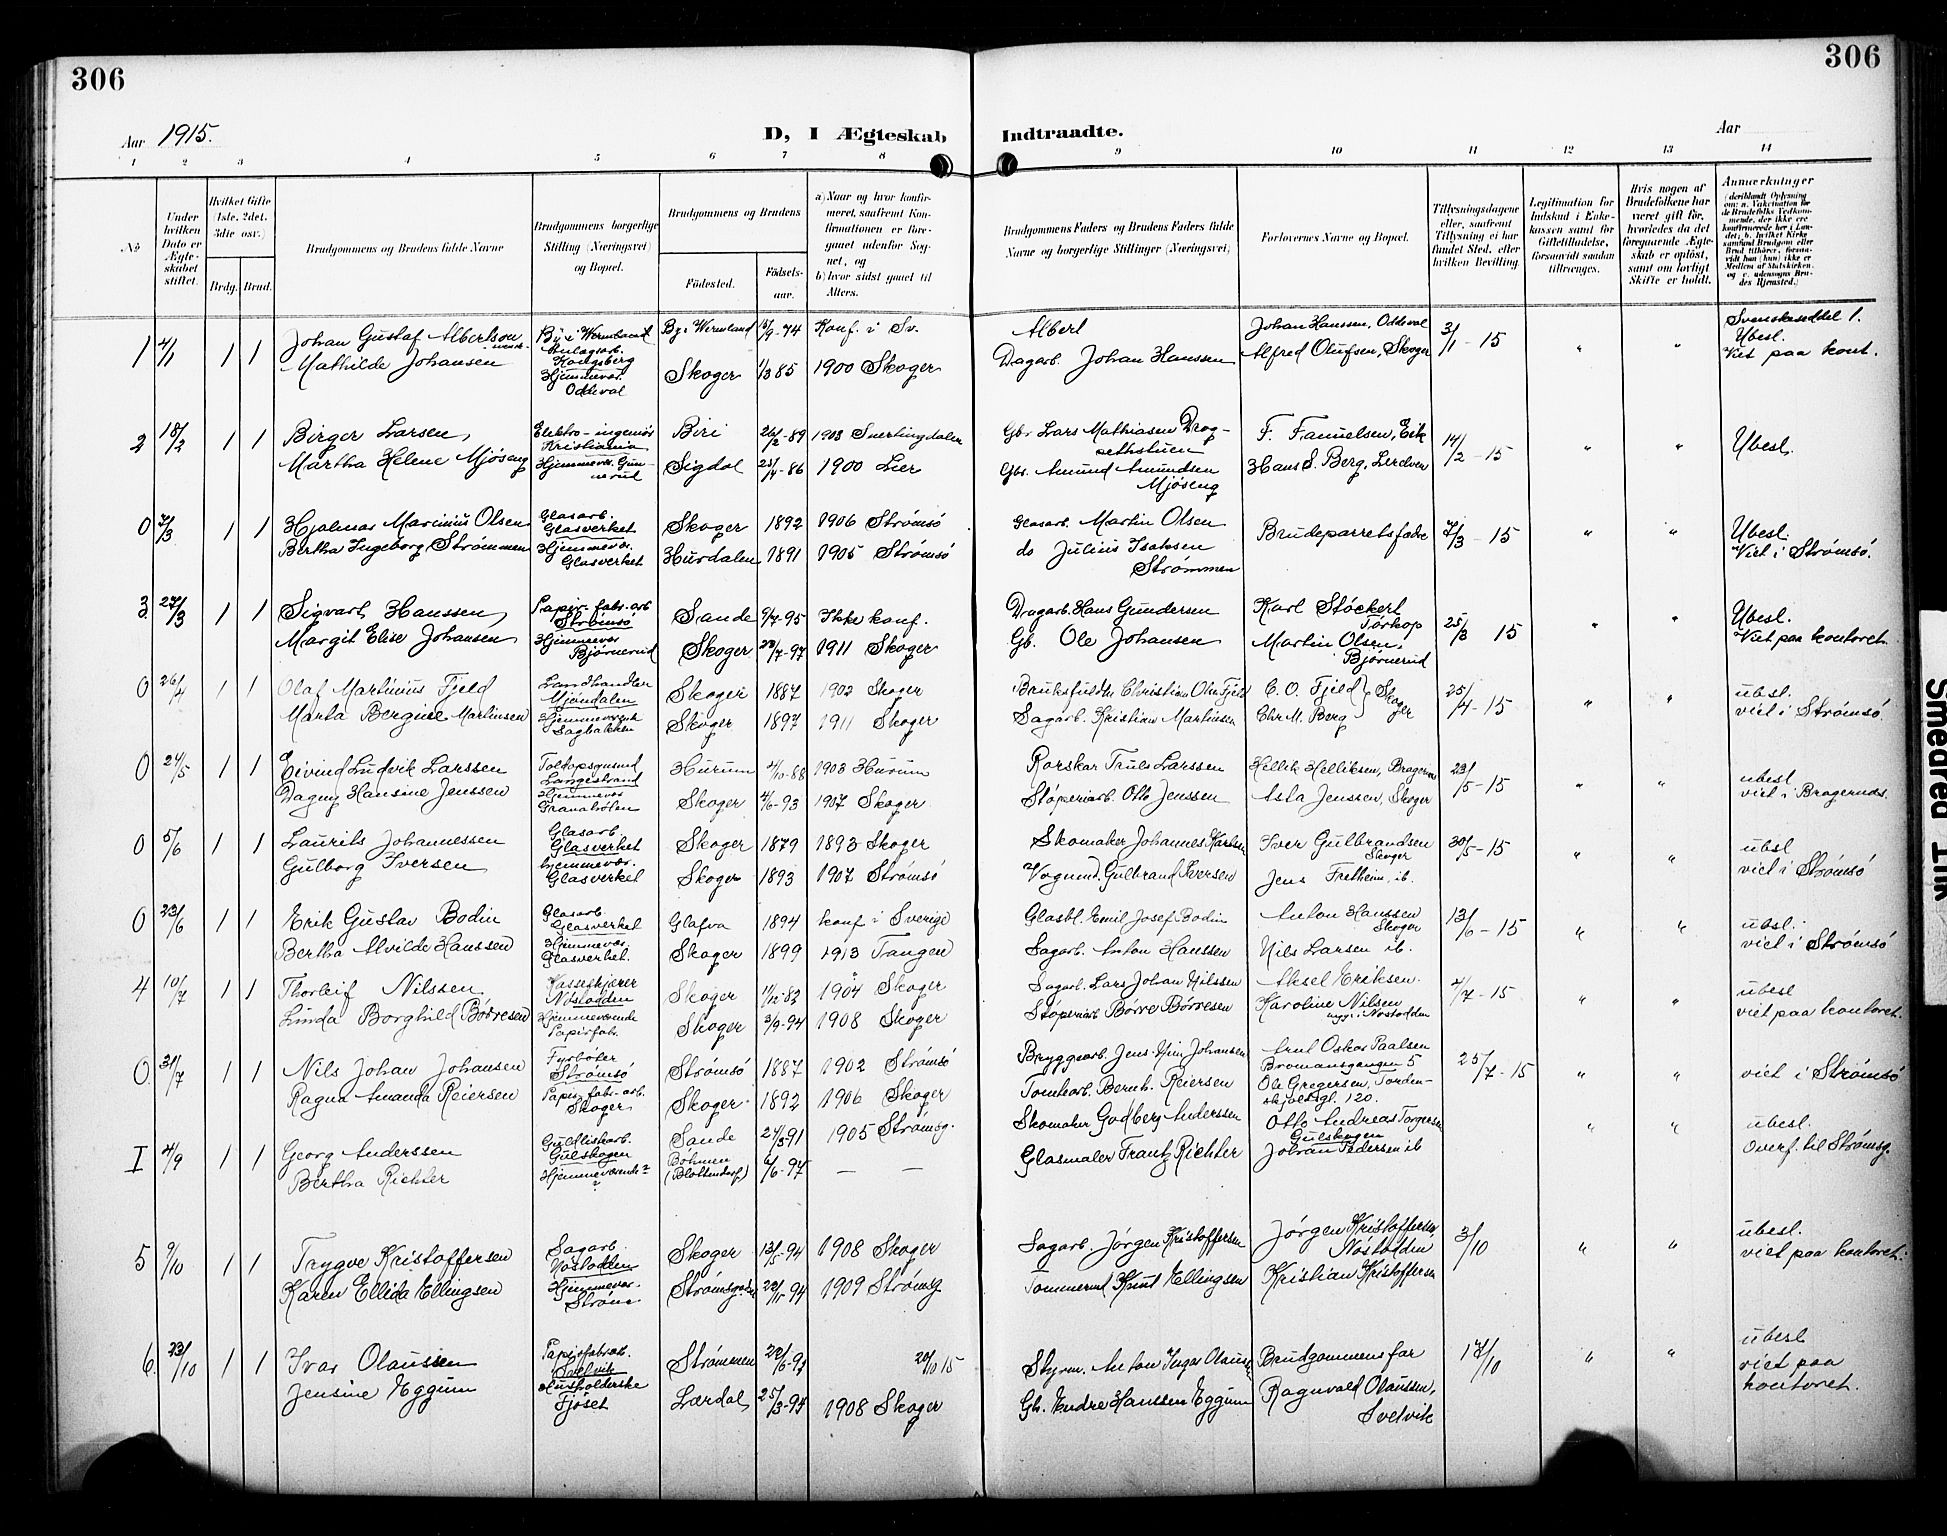 306
306
Aar 1915.
D, I Ægteskab Indtraadte.
Aar
1 2 3 4 5 6 7 8 9 10 11 12 13 14
No
Under hvilken Dato er Ægteskabet stiftet.
Hvilket Gifte (1ste, 2det, 3die osv.)
Brdg. Brud.
Brudgommens og Brudens fulde Navne
Brudgommens borgerlige Stilling (Næringsvei) og Bopæl.
Brudgommens og Brudens
Fødested.
Fødselsaar.
a) Naar og hvor konfirmeret, saafremt Konfirmationen er foregaaet udenfor Sognet, og
b) hvor sidst gaaet til Alters.
Brudgommens Faders og Brudens Faders fulde Navne og borgerlige Stillinger (Næringsvei)
Forlovernes Navne og Bopæl.
Tillysningsdagene eller, saafremt Tillysning ei har fundet Sted, efter hvilken Bevilling.
Legitimation for Indskud i Enkekassen samt for Giftetilladelse, forsaavidt saadan tiltrænges.
Hvis nogen af Brudefolkene har været gift før, hvorledes da det foregaaende Ægteskab er opløst, samt om lovligt Skifte er holdt.
Anmærkninger
1 4/1 1 1 Johan Gustaf Albertson By i Wermland 15/9-74 Konf. i Sv. Albert Johan Hanssen, Oddeval 3/1-15 " " Ubesl.
Mathilde Johansen Kongsberg Hjemmevær. Oddeval Skoger 1/3 85 1900 Skoger Dagarb. Johan Hanssen Alfred Olufsen, Skoger Viet paa kont.
2 18/2 1 1 Birger Larsen, Elektro-ingeniør Kristiania Biri 26/2-89 1903 Snertingdalen Gbr. Lars Mathiasen F. Fanuelsen, Eik 14/2-15 " " Ubesl.
Martha Helene Mjøseng Hjemmevær. Sigdal 1900 Lier Gbr. Amund Amundsen Mjøseng Hans S. Berg,
0 7/3 1 1 Hjalmar Marinius Olsen Glasarb. Glasverket Skoger 1892 1906 Strømsø Glasarb. Martin Olsen Brudeparrets fædre 7/3-15 " " Ubesl.
Bertha Ingeborg Strømmen Hjemmevær. Glasverket Hurdalen 1891 1905 Strømsø do Julius Isaksen Strømmen Viet i Strømsø.
3 27/3 1 1 Sigvart Hanssen, Papir-fabr.arb Strømsø Sande 9/7-95 Ikke konf. Dagarb. Hans Gundersen Karl Støckert Tørkop 25/3 15 " " Ubesl.
Margit Elise Johansen Hjemmevær Bjørnerud Skoger 1911 Skoger Gb. Ole Johansen Martin Olsen, Bjørnerud Viet paa kontoret.
0 26/4 1 1 Olaf Martinius Fjeld Landhandler Mjøndalen Skoger 1887 1902 Skoger Christian Olsen Fjeld C. O. Fjeld } Skoger 25/4-15 " " ubesl.
Marta Bergine Martinsen Hjemmevær. Sagbakken Skoger 1897 1911 Skoger Sagarb. Kristian Martinsen Chr. M. Berg viet i Strømsø
0 24/5 1 1 Eivind Ludvik Larssen Toldopsynsmd Langestrand Hurum 1903 Hurum Rorskar Truls Larssen Hellik Helliksen, Bragernæs 23/5-15 " " ubesl
Dagny Hansine Jenssen Hjemmevær Skoger 4/6-93 1907 Skoger Støperiarb. Otto Jenssen Asta Jenssen, Skoger viet i Bragernæs.
0 5/6 1 1 Laurits Johannessen Glasarb. Glasverket Skoger 1879 1893 Skoger Skomaker Johannes Karlsen Iver Gulbrandsen Skoger 30/5-15 " " ubesl
Gulborg Iversen hjemmevær. Glasverket Skoger 1893 1907 Strømsø Vognmd. Gulbrand Iversen Jens Fretheim, ib. viet i Strømsø
0 23/6 1 1 Erik Gustav Bodin Glasarb. Glasverket Glafva 1894 konf. i Sverige Glasbl. Emil Josef Bodin Anton Hanssen Skoger 13/6-15 " " ubesl.
Bertha Alvilde Hanssen Hjemmevær. Glasverket. Skoger 1899 1913 Tangen Sagarb. Anton Hanssen Nils Larsen ib. viet i Strømsø
4 10/7 1 1 Thorleif Nilssen Nøstodden Skoger 11/12-82 1904 Skoger Sagarb. Lars Johan Nilssen Aksel Eriksen. 4/7-15 " " ubesl
Linda Borghild Børresen Hjemmeværende Papirfab. Skoger 3/9-94 1908 Skoger Støperiarb Børre Børresen Karoline Nilsen Nøstodden viet paa kontoret.
0 31/7 1 1 Nils Johan Johansen Fyrbøter Strømsø Strømsø 1887 1902 Strømsø Bryggearb. Jens Johansen Oskar Paalsen 25/7-15 " " viet i Strømsø
Ragna Amanda Reiersen Papir-fabr-arb. Skoger Skoger 1892 1906 Skoger Tomtearb. Bernt. Reiersen Ole Gregersen, Tordenskjoldsgt. 120.
I 4/9 1 1 Georg Anderssen Gulskogen Sande 27/3-91 1905 Strømsg. Skomaker Godberg Anderssen Otto Andreas Torgersen Gulskogen " " ubesl.
Bertha Richter Hjemmeværende? Böhmen (Blottendorf) 6/6-97 — — Glasmaler Frantz Richter Johan Pedersen ib Overf. til Strømsg.
5 9/10 1 1 Trygve Kristoffersen Sagarb. Nøstodden Skoger 13/5-94 1908 Skoger Sagarb. Jørgen Kristoffersen Jørgen Kristoffersen Nøstodden 3/10 " " ubesl.
Karen Ellida Ellingsen Hjemmevær. Strøm Strømsgodset 1909 Strømsg Tømmermd Knut Ellingsen Kristian Kristoffersen viet paa kontoret.
6 23/10 1 1 Ivar Olaussen Papirfabrarb. Svelvik Strømmen 20/10 15 Styrm. Anton Inger Olaussen Brudgommens far 17/10 " " ubesl
Jensine Eggum Husholderske Fjøset Lærdal 25/3-94 1908 Skoger Gb. Endre Hanssen Eggum Ragnvald Olaussen, Svelvik viet paa kontoret.
Smeared Ink